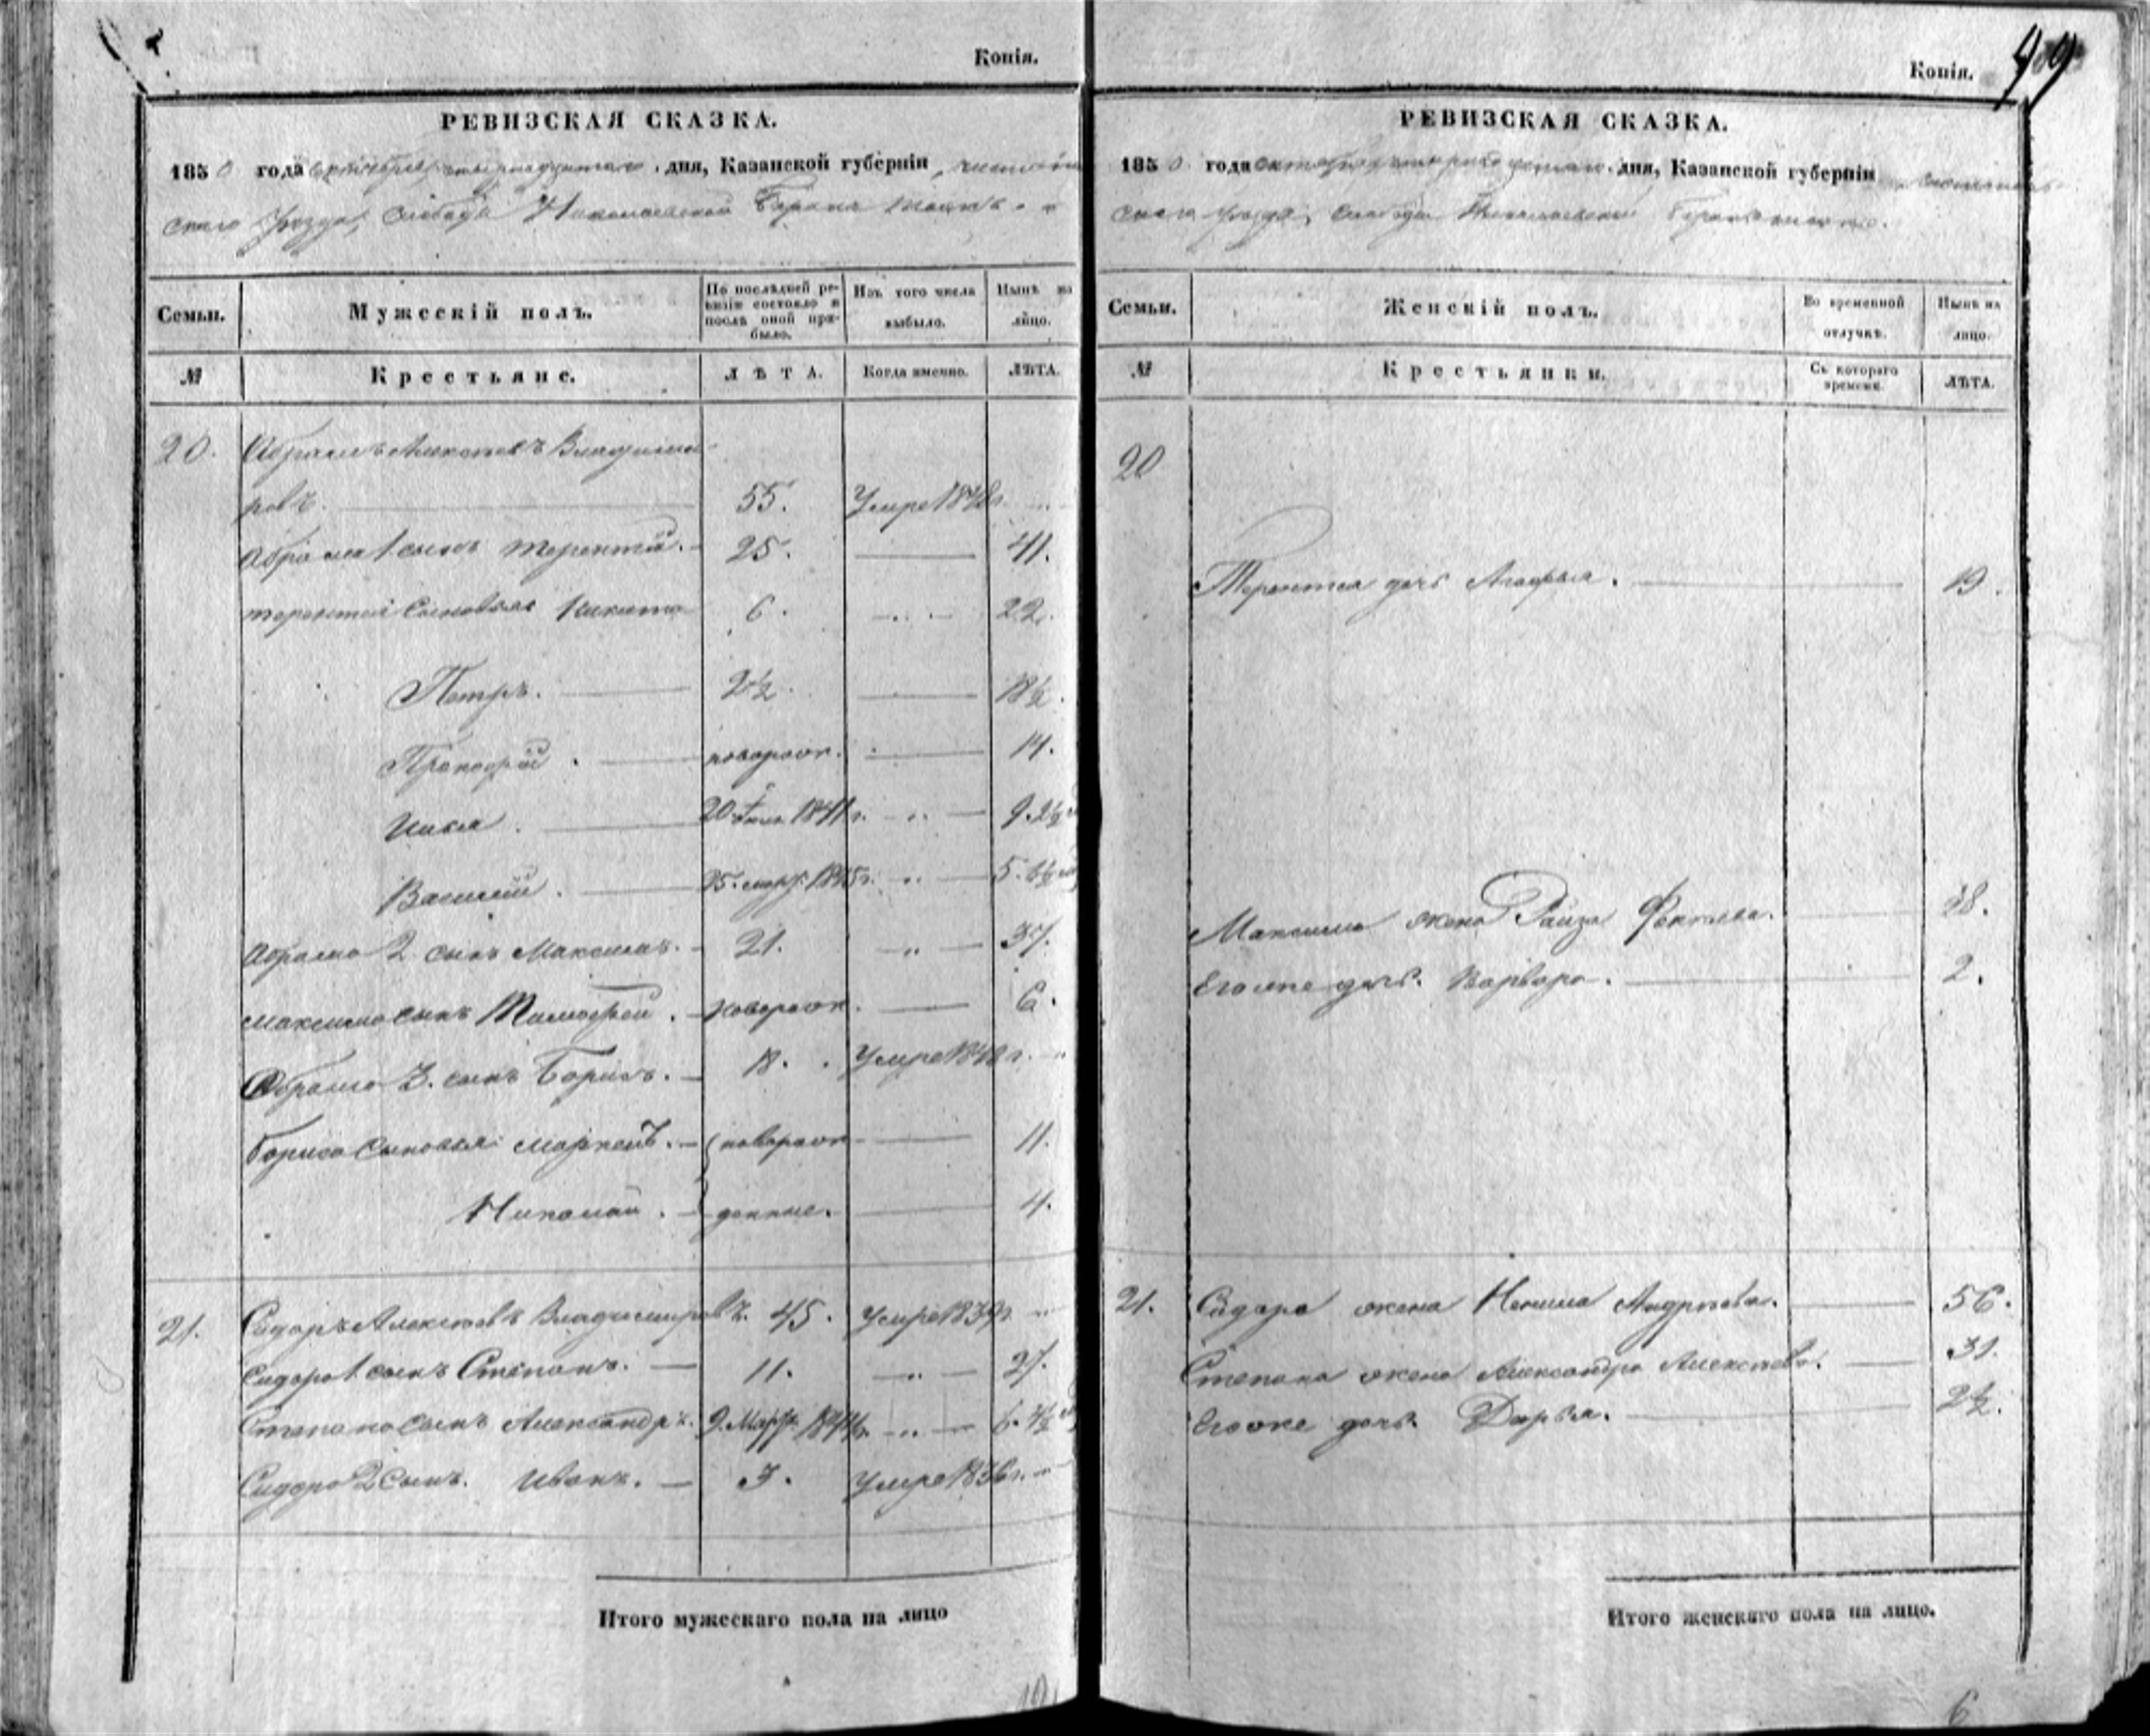 Копія.
РЕВИЗСКАЯ СКАЗКА.
1850 года октября четырнадцатаго дня, Казанской губерніи,
скаго уѣзда, слободы Николаевской Баранъ тожъ.
Семьи.
Мужескій полъ.
По послѣдней ре-
визіи состояло и
послѣ оной при-
было.
Изъ того числа
выбыло.
Нынѣ на
лицо.
№
Крестьяне.
ЛѢТА.
Когда именно.
ЛѢТА.
20.
Абрамъ Алексѣевъ Владими-
ровъ. 55. Умре 1848 г.
Абрама 1 сынъ Терентій. 25. 41.
Терентія сыновья Никита 6. 22.
Петръ. 2½. 18½.
Прокофій. новорож. 14.
Илья. 20 1841 г. 9. 2½
Василій. 25. март. 1845 г. 5. 6½
Абрама 2 сынъ Максимъ. 21. 37.
Максима сынъ Тимофей. новорож. 6.
Абрама 3. сынъ Борисъ. 18. Умре 1848 г.
Бориса сыновья: Маркелъ. новорож 11.
Николай. денные. 4.
21. Сидоръ Алексѣевъ Владимировъ. 45. Умре 1839 г.
Сидора 1 сынъ Степанъ. 11. 27.
Степана сынъ Александръ. 9. Март. 1844 г. 6. 4½
Сидора 2 сынъ. Иванъ. 3. Умре 1836 г.
Итого мужескаго пола на лицо
Копія.
РЕВИЗСКАЯ СКАЗКА.
1850 года октября четырнадцатаго дня, Казанской губерніи
скаго уѣзда, слободы Николаевской Баранъ тожъ.
Семьи.
Женскій полъ.
Во временной
отлучкѣ.
Нынѣ на
лицо.
№
Крестьянки.
Съ котораго
времени.
ЛѢТА.
20
Терентія дочь Агафья. 19.
Максима жена Раиза 38.
Его же дочь. Варвара. 2.
21. Сидора жена Ненила Андреева. 56.
Степана жена Александра Алексѣева. 31.
Его же дочь. Дарья. 2½.
Итого женскаго пола на лицо.
6